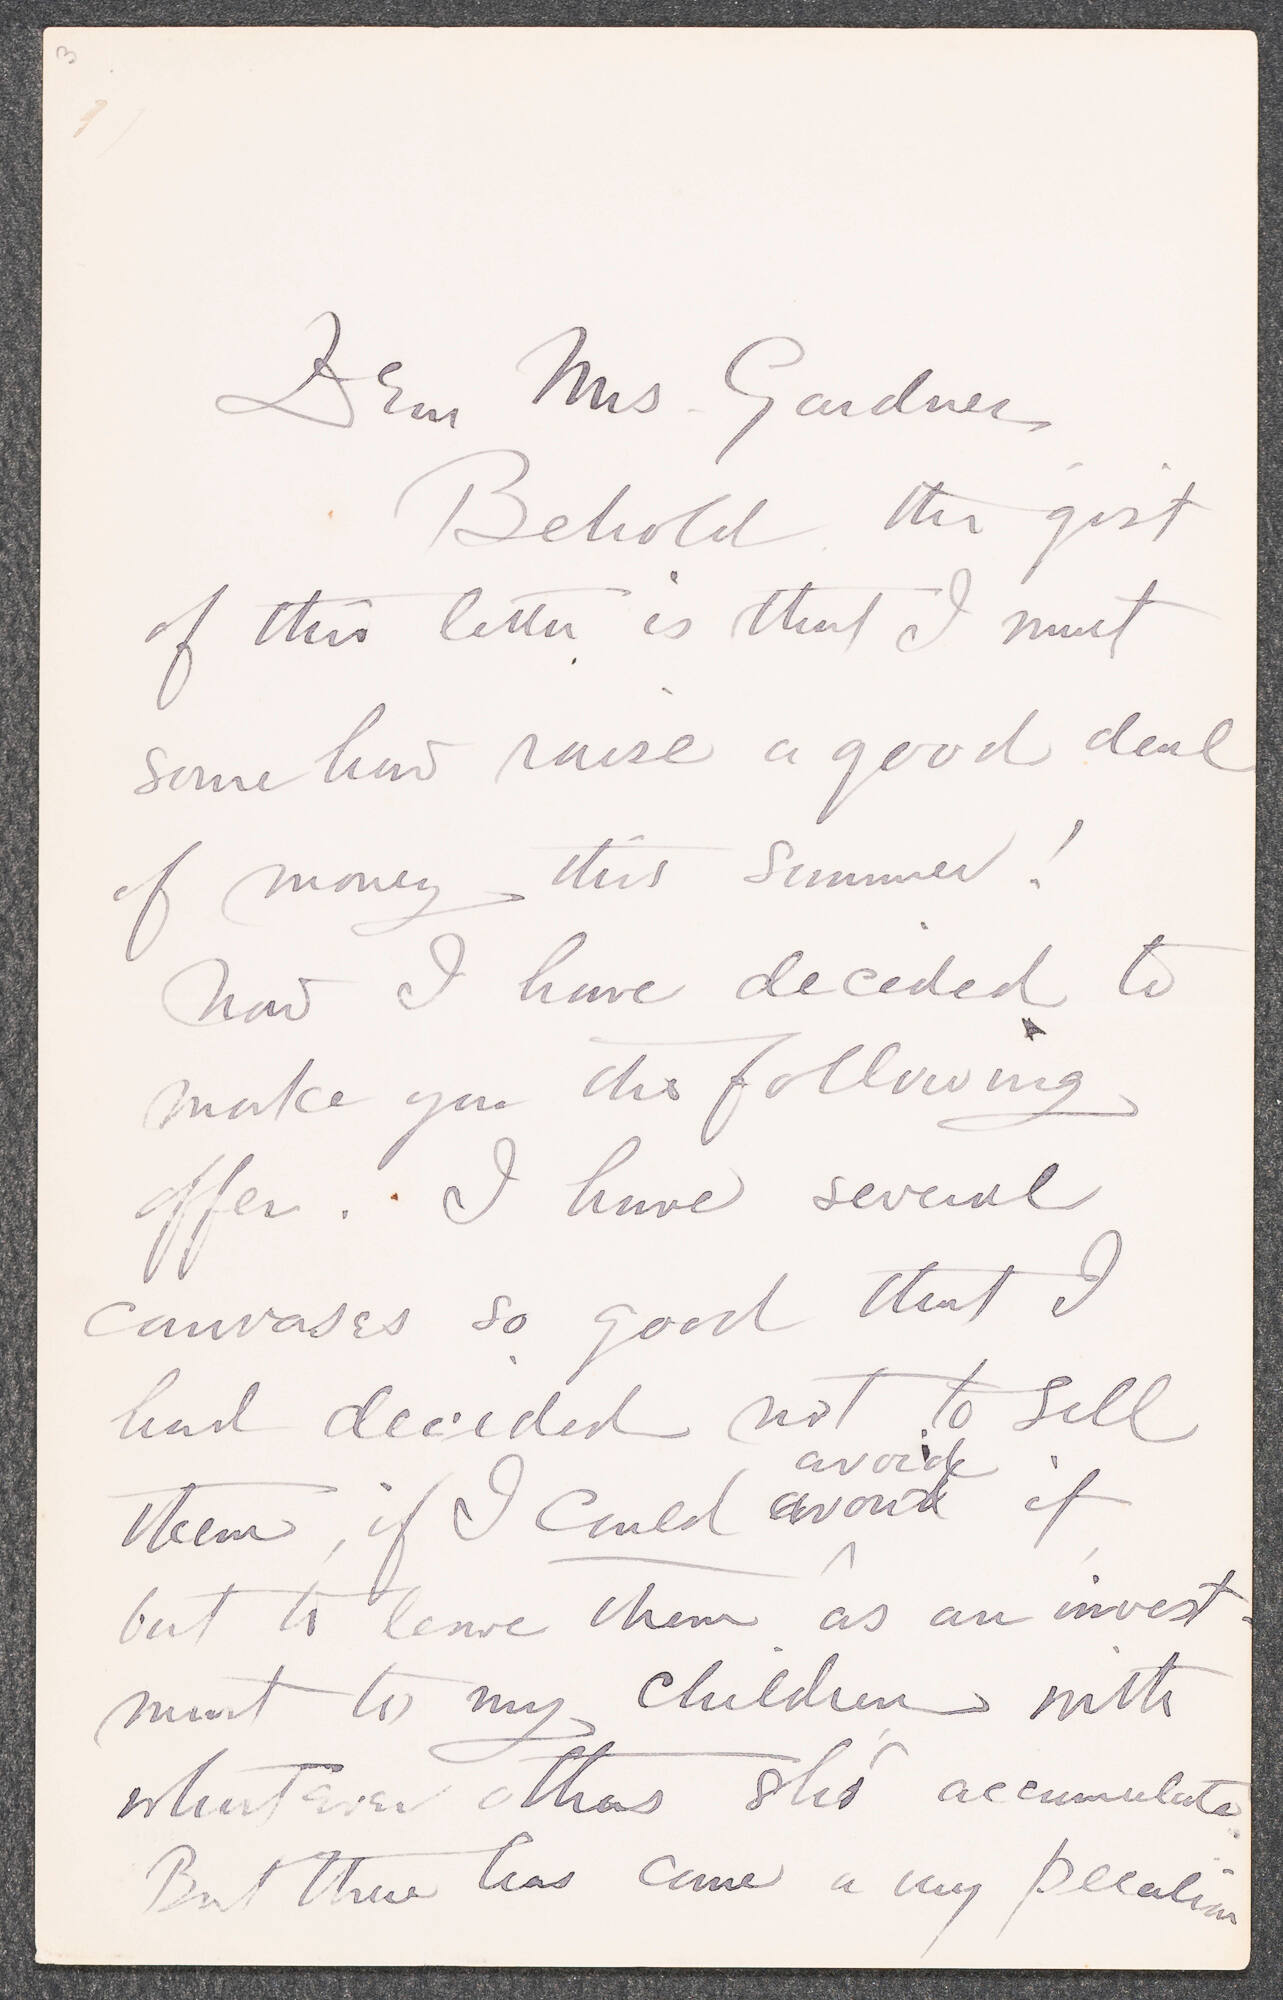 3
Dear Mrs. Gardner
Behold the gist
of this letter is that I must
some how raise a good deal
of money this summer!
Now I have decided to
make you the following
offer. I have several
canvases so good that I
had decided not to sell
avoid
them, if I could avoid it,
but to leave them as an invest-
ment to my children with
whatever others
accumulate
But there has come a very peculiar